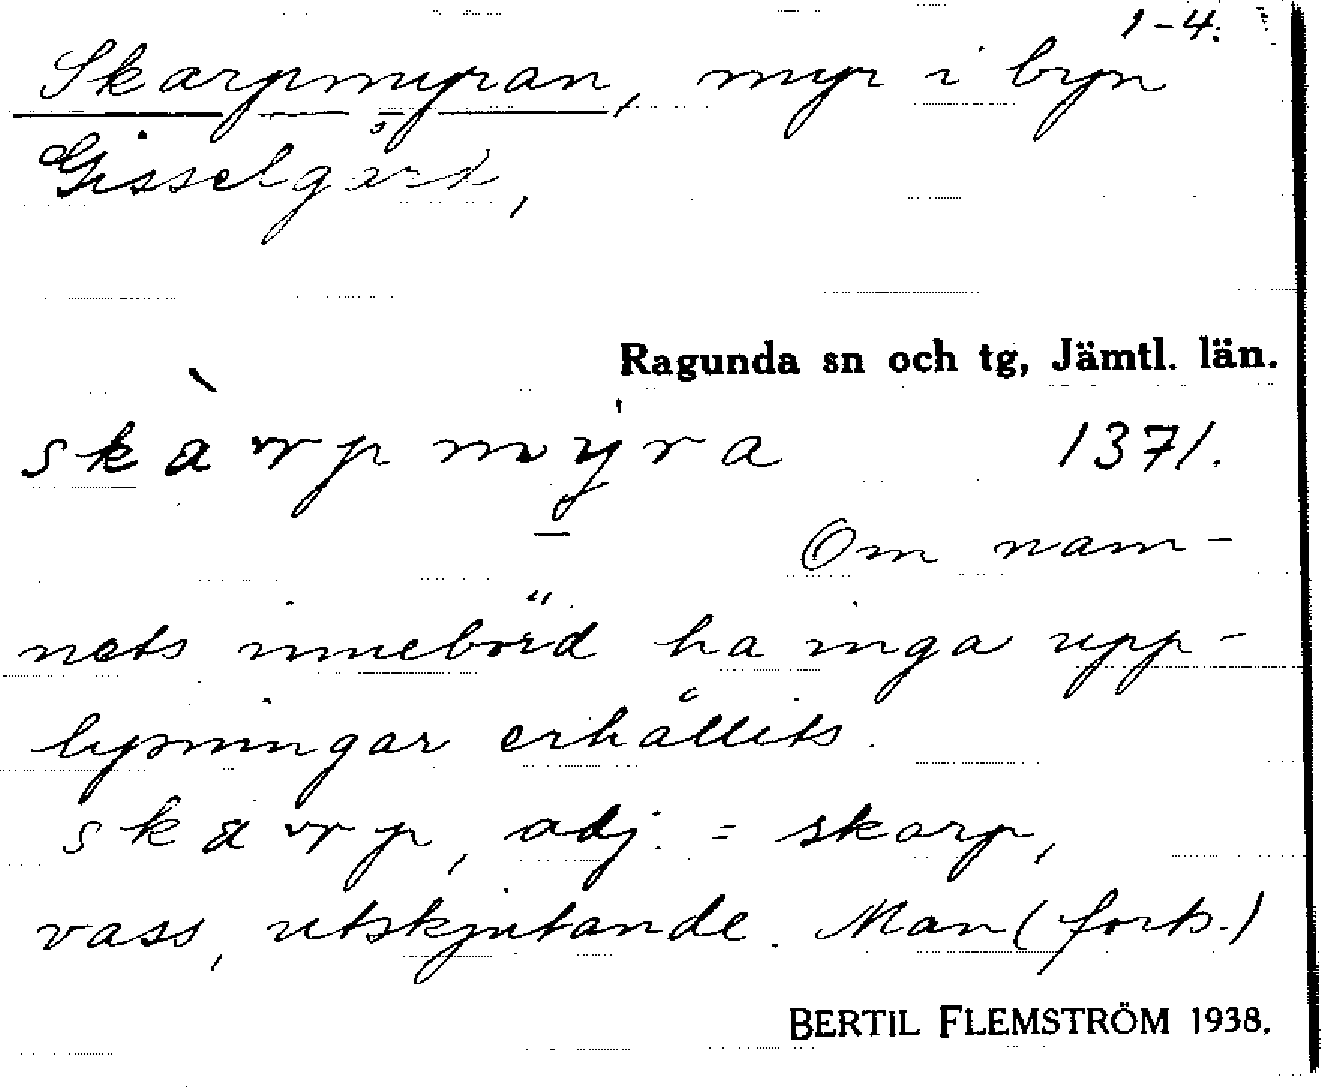 1-4.
Skarpmyran, myr i byn
Gisselgård,
Ragunda sn och tg, Jämtl. län.
skàrpmyra 1371.
Om nam-
nets innebörd ha inga upp-
lysningar erhållits.
skarp, adj. = skarp,
vass, utskjutande. Man (forts.)
BERTIL FLEMSTRÖM 1938.